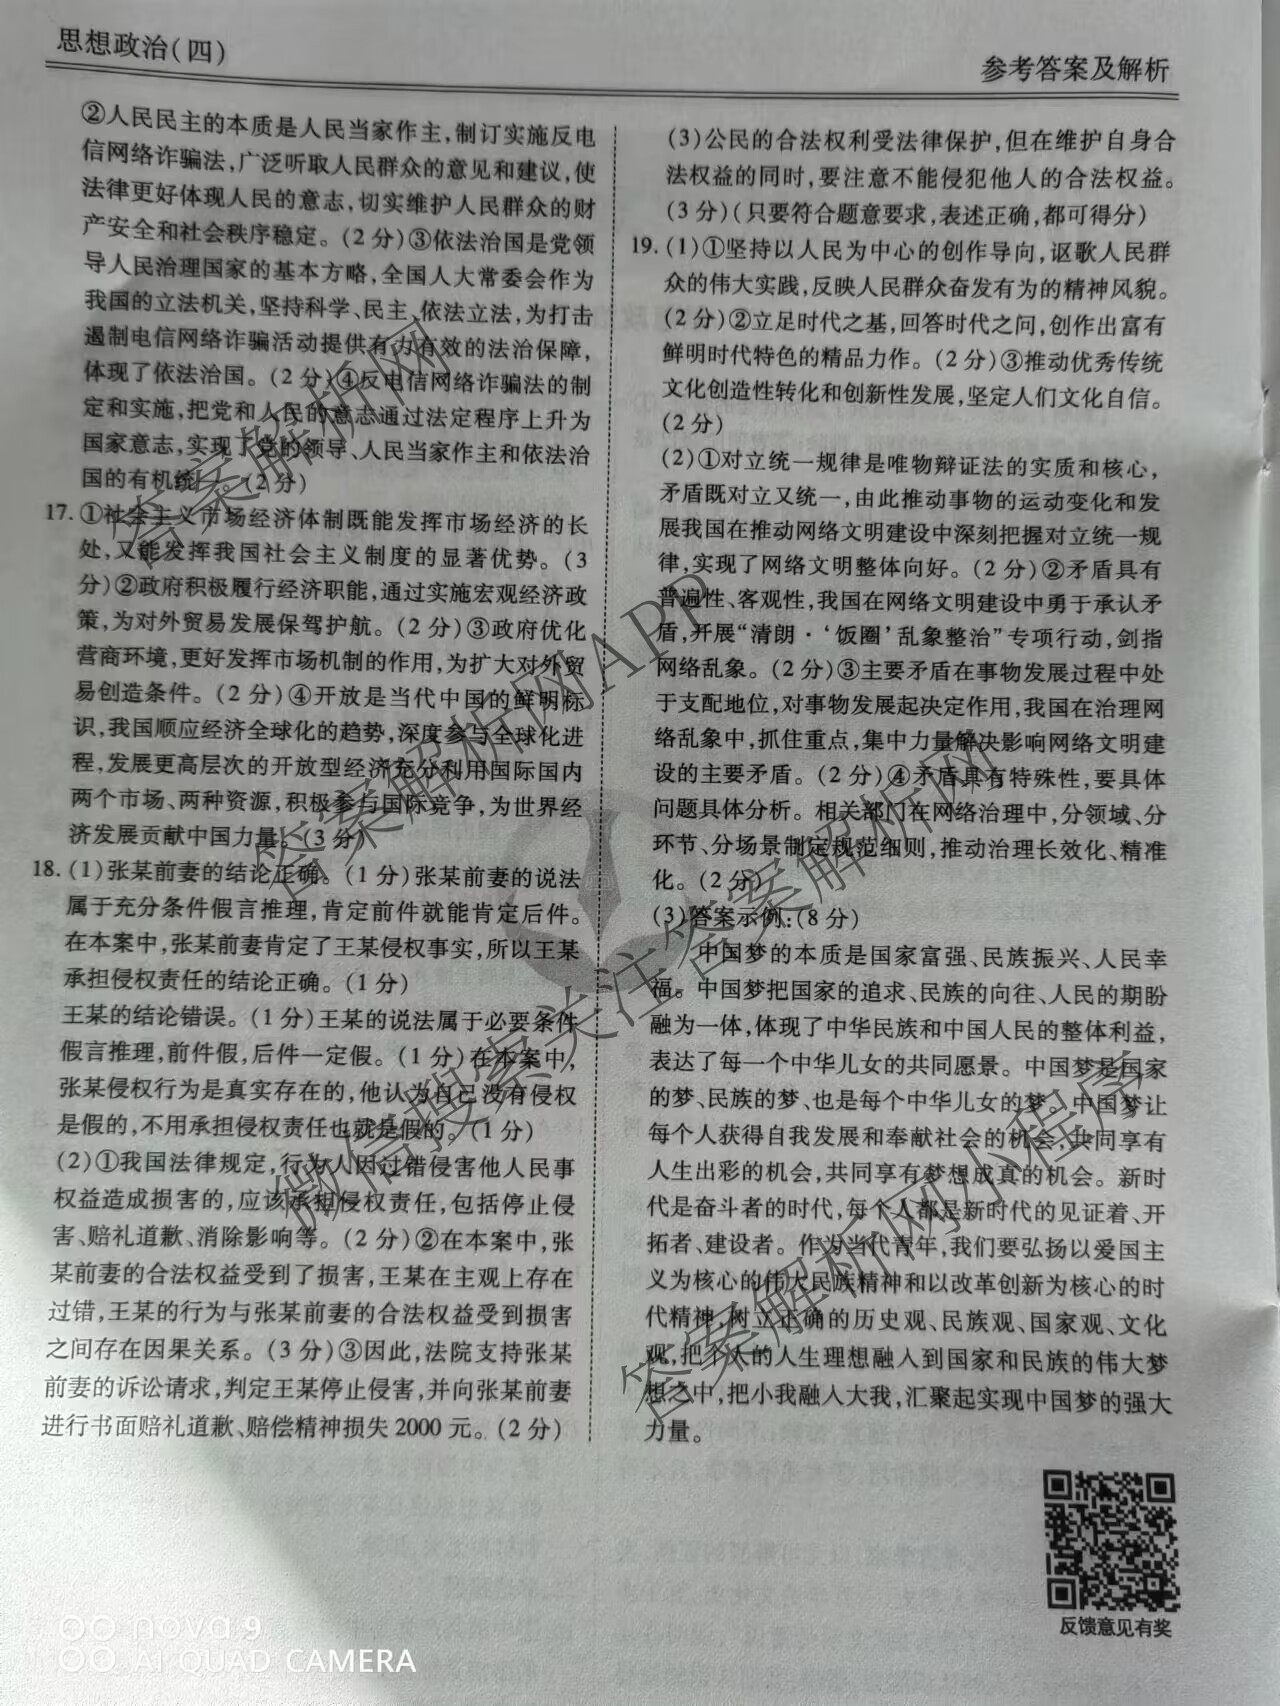 思想政治(四)
参考答案及解析
②人民民主的本质是人民当家作主,制订实施反电
信网络诈骗法,广泛听取人民群众的意见和建议,使
法律更好体现人民的意志,切实维护人民群众的财
产安全和社会秩序稳定。(2分)③依法治国是党领
导人民治理国家的基本方略,全国人大常委会作为
我国的立法机关,坚持科学、民主、依法立法,为打击
遏制电信网络诈骗活动提供有力有效的法治保障,
体现了依法治国。(2分)④反电信网络诈骗法的制
定和实施,把党和人民的意志通过法定程序上升为
国家意志,实现了党的领导、人民当家作主和依法治
国的有机统一。(2分)
17.①社会主义市场经济体制既能发挥市场经济的长
处,又能发挥我国社会主义制度的显著优势。(3
分)②政府积极履行经济职能,通过实施宏观经济政
策,为对外贸易发展保驾护航。(2分)③政府优化
营商环境,更好发挥市场机制的作用,为扩大对外贸
易创造条件。(2分)④开放是当代中国的鲜明标
识,我国顺应经济全球化的趋势,深度参与全球化进
程,发展更高层次的开放型经济充分利用国际国内
两个市场、两种资源,积极参与国际竞争,为世界经
济发展贡献中国力量。(3分)
18.(1)张某前妻的结论正确。(1分)张某前妻的说法
属于充分条件假言推理,肯定前件就能肯定后件。
在本案中,张某前妻肯定了王某侵权事实,所以王某
承担侵权责任的结论正确。(1分)
王某的结论错误。(1分)王某的说法属于必要条件
假言推理,前件假,后件一定假。(1分)在本案中,
张某侵权行为是真实存在的,他认为自己没有侵权
是假的,不用承担侵权责任也就是假的。(1分)
(2)①我国法律规定,行为人因过错侵害他人民事
权益造成损害的,应该承担侵权责任,包括停止侵
害、赔礼道歉、消除影响等。(2分)②在本案中,张
某前妻的合法权益受到了损害,王某在主观上存在
过错,王某的行为与张某前妻的合法权益受到损害
之间存在因果关系。(3分)③因此,法院支持张某
前妻的诉讼请求,判定王某停止侵害,并向张某前妻
进行书面赔礼道歉、赔偿精神损失2000元。(2分)
(3)公民的合法权利受法律保护,但在维护自身合
法权益的同时,要注意不能侵犯他人的合法权益。
(3分)(只要符合题意要求,表述正确,都可得分)
19.(1)①坚持以人民为中心的创作导向,讴歌人民群
众的伟大实践,反映人民群众奋发有为的精神风貌。
(2分)②立足时代之基,回答时代之问,创作出富有
鲜明时代特色的精品力作。(2分)③推动优秀传统
文化创造性转化和创新性发展,坚定人们文化自信。
(2分)
(2)①对立统一规律是唯物辩证法的实质和核心,
矛盾既对立又统一,由此推动事物的运动变化和发
展我国在推动网络文明建设中深刻把握对立统一规
律,实现了网络文明整体向好。(2分)②矛盾具有
普遍性、客观性,我国在网络文明建设中勇于承认矛
盾,开展“清朗·‘饭圈’乱象整治”专项行动,剑指
网络乱象。(2分)③主要矛盾在事物发展过程中处
于支配地位,对事物发展起决定作用,我国在治理网
络乱象中,抓住重点,集中力量解决影响网络文明建
设的主要矛盾。(2分)④矛盾具有特殊性,要具体
问题具体分析。相关部门在网络治理中,分领域、分
环节、分场景制定规范细则,推动治理长效化、精准
化。(2分)
(3)答案示例:(8分)
中国梦的本质是国家富强、民族振兴、人民幸
福。中国梦把国家的追求、民族的向往、人民的期盼
融为一体,体现了中华民族和中国人民的整体利益,
表达了每一个中华儿女的共同愿景。中国梦是国家
的梦、民族的梦、也是每个中华儿女的梦。中国梦让
每个人获得自我发展和奉献社会的机会,共同享有
人生出彩的机会,共同享有梦想成真的机会。新时
代是奋斗者的时代,每个人都是新时代的见证着、开
拓者、建设者。作为当代青年,我们要弘扬以爱国主
义为核心的伟大民族精神和以改革创新为核心的时
代精神,树立正确的历史观、民族观、国家观、文化
观,把个人的人生理想融入到国家和民族的伟大梦
想之中,把小我融入大我,汇聚起实现中国梦的强大
力量。
反馈意见有奖
答案解析网
答案解析网APP
微信搜索关注答案解析网
答案解析网小程序
nova 9
AI QUAD CAMERA